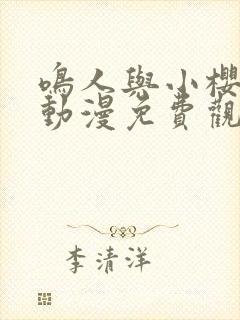 鳴人與小櫻
動漫免費觀
李清洋